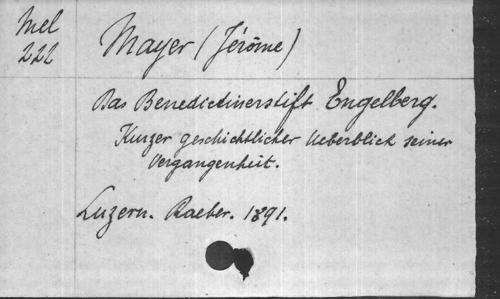 Mel
222
Mayer (Jérôme)
Das Benedictinerstift Engelberg.
Kurzer geschichtlicher Ueberblick seiner
Vergangenheit.
Luzern. Raeber. 1891.